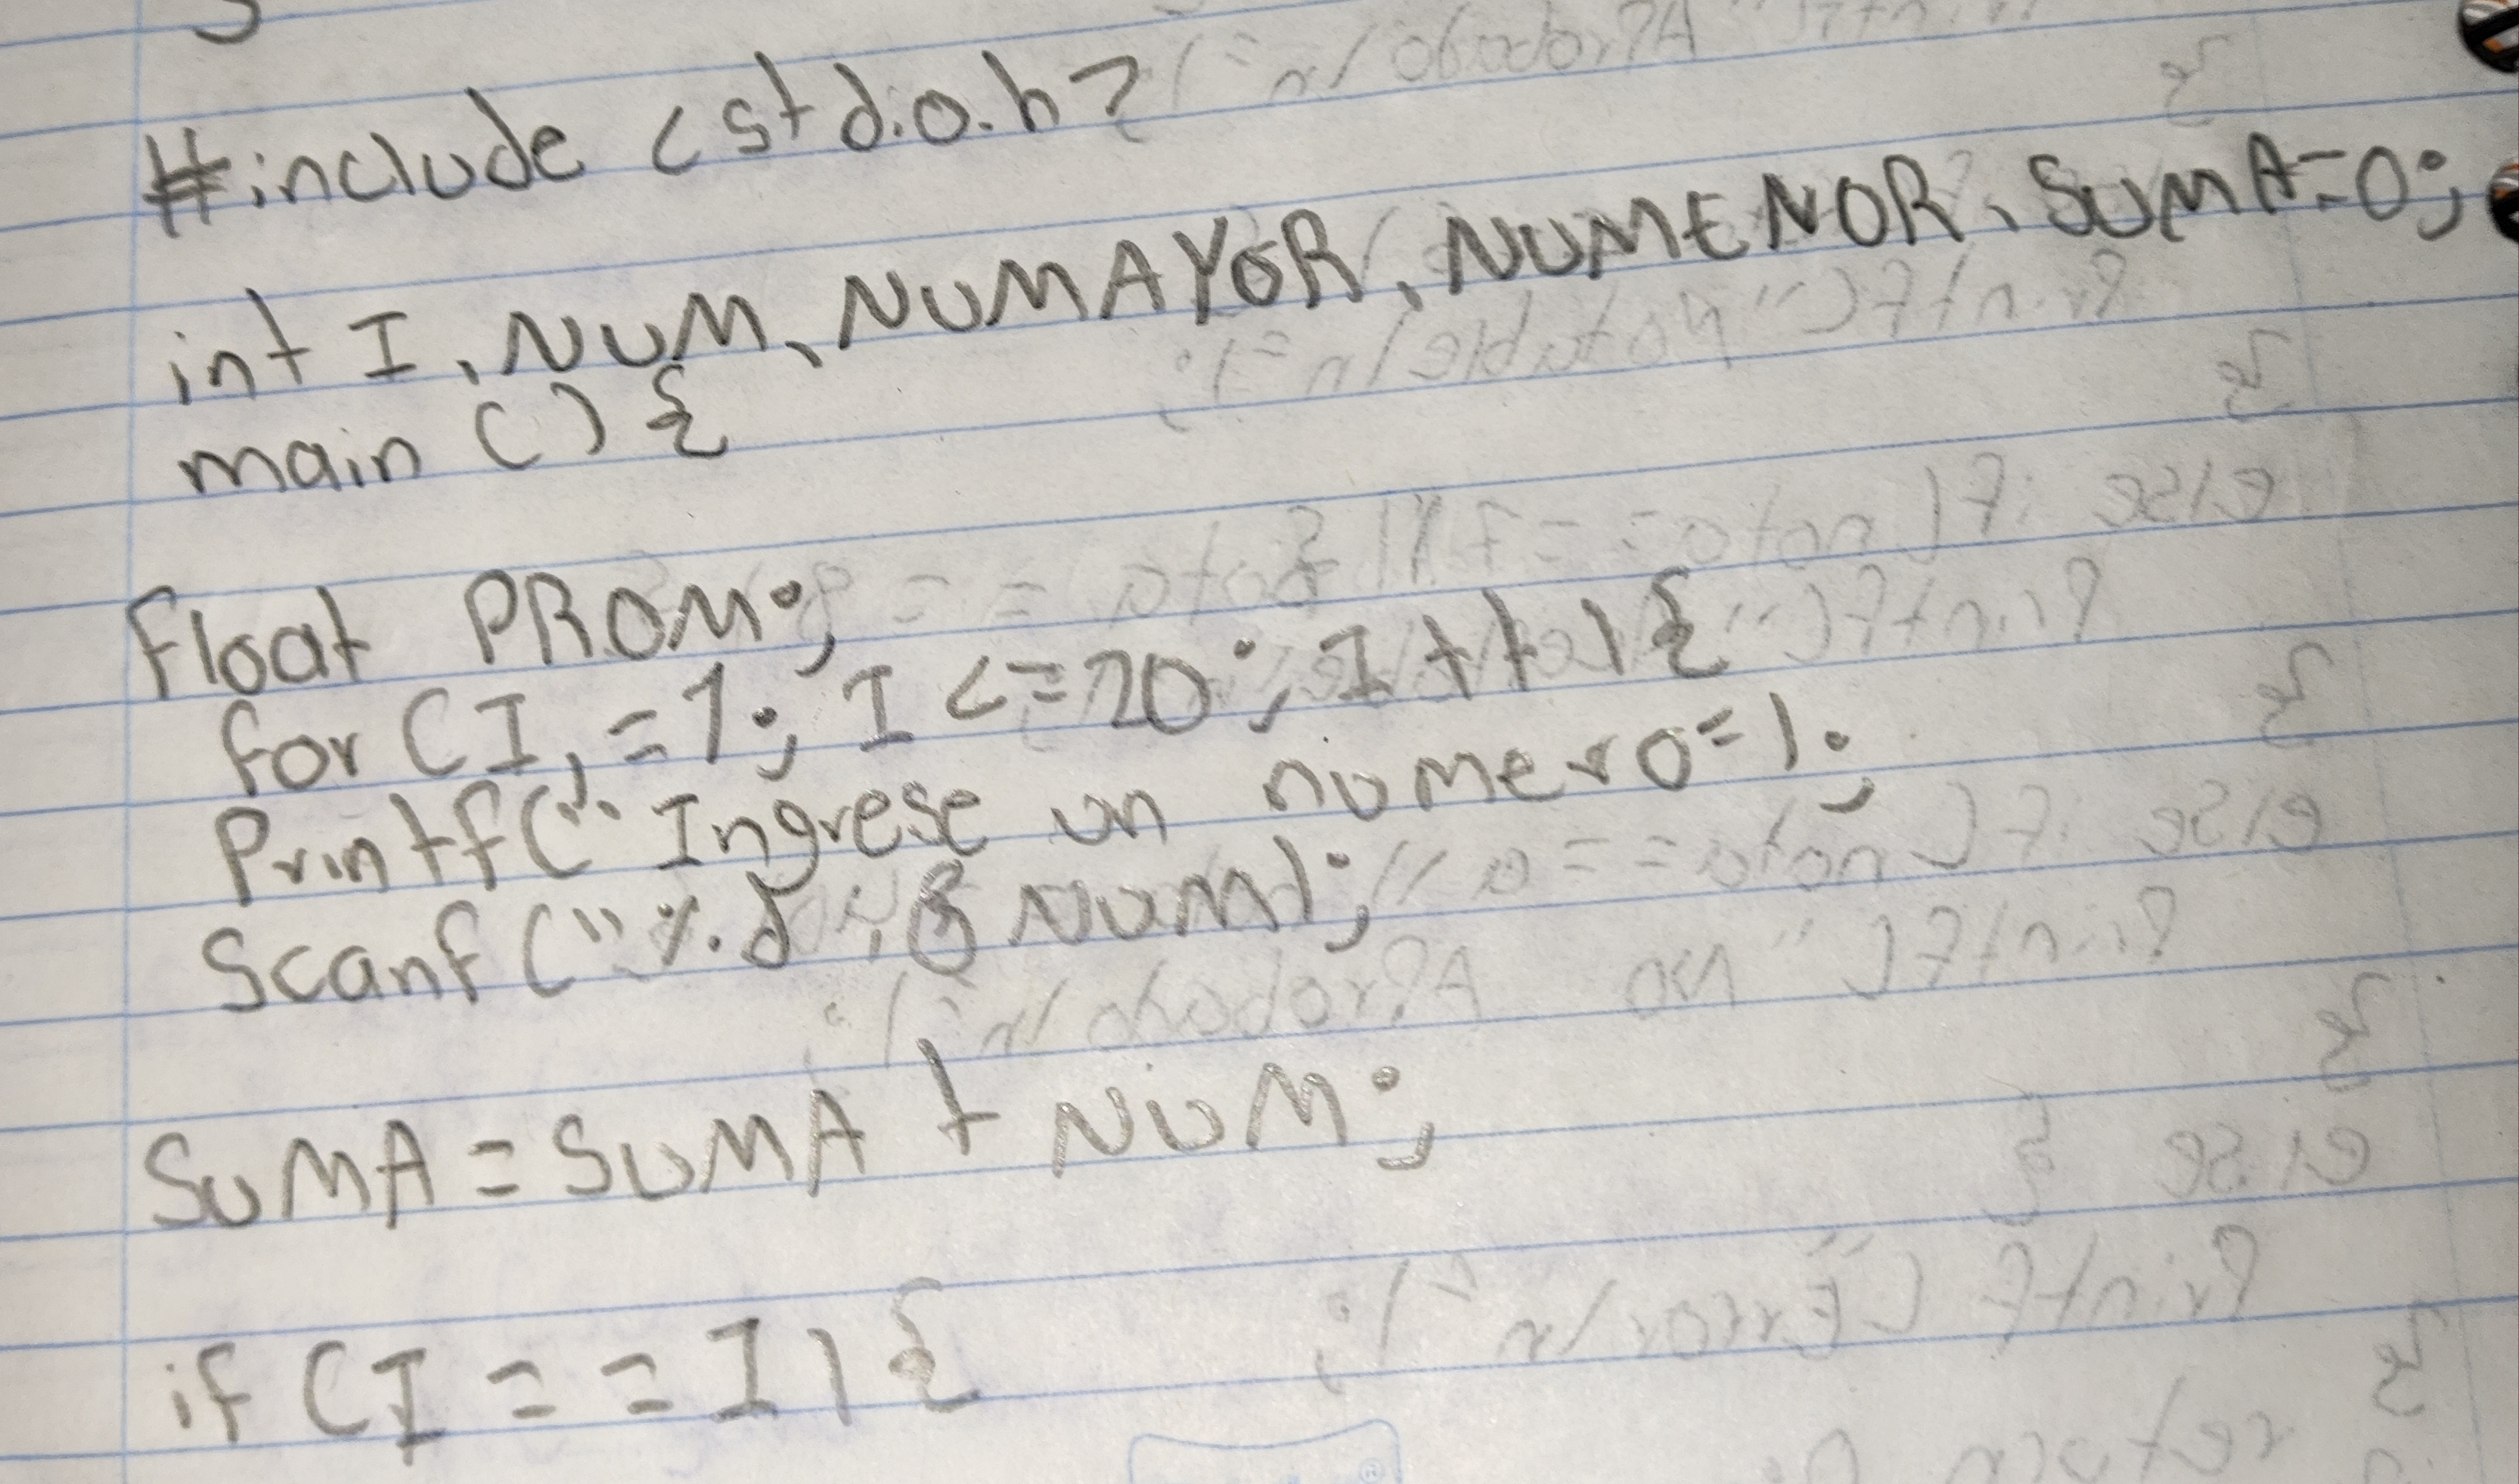 #include <stdio.h>
int I, NUM, NUMAYOR, NUMENOR, SUMA=0;
main () {
Float PROM;
for (I,=1; I <=20; I++){
Printf(" Ingrese un numero=);
Scanf ("%d, & NUM);
SUMA = SUMA + NUM;
if (I == I) {